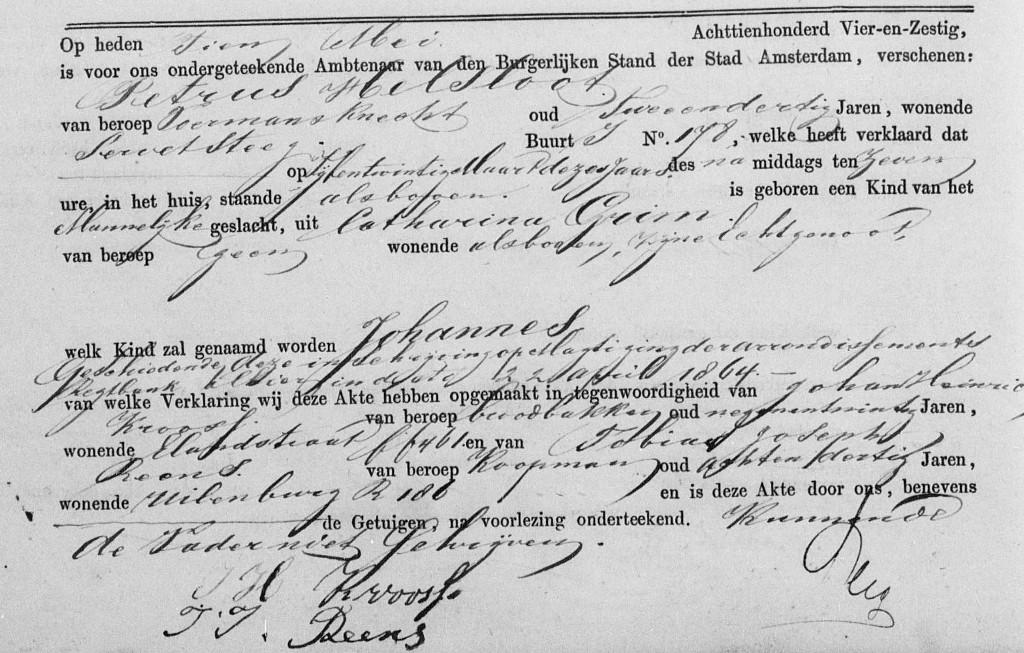 Op heden Tien Mei. Achttienhonderd Vier-en-Zestig,
is voor ons ondergeteekende Ambtenaar van den Burgerlijken Stand der Stad Amsterdam, verschenen:
Petrus Helsloot.
van beroep Voermansknecht oud Tweeendertig Jaren, wonende
Servetsteeg Buurt I No. 178, welke heeft verklaard dat
op Vyfentwintig Maart dezes Jaars des na middags ten Zeven
ure, in het huis, staande alsboven. is geboren een Kind van het
Mannelyke geslacht, uit Catharina Grim.
van beroep geen wonende alsboven, zyne Echtgenoot,
welk Kind zal genaamd worden Johannes
Geschiedende deze inschryving op Magtiging der arrondissements
Regtbank alhier in dato 22 April 1864. —
van welke Verklaring wij deze Akte hebben opgemaakt in tegenwoordigheid van Johan Heinrich
Kroos van beroep broodbakker oud negenentwintig Jaren,
wonende Elandstraat ff 461. en van Tobias Joseph
Reens van beroep Koopman oud achtendertig Jaren,
wonende Uilenburg R 186 en is deze Akte door ons, benevens
de Getuigen, na voorlezing onderteekend. Kunnende
de Vader niet Schrijven.
J H Kroos
T. J. Reens